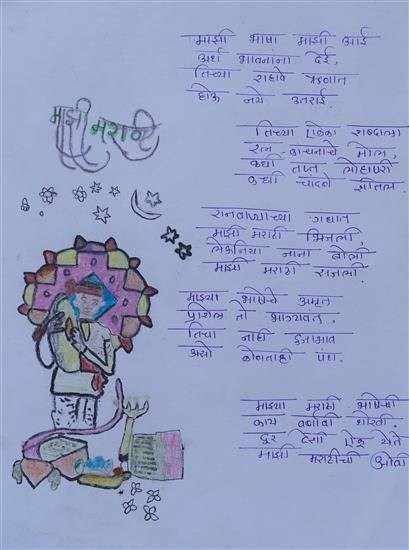 माझी मराठी
माझी भाषा माझी आई
अर्थ भावनांना देई,
तिच्या राहावे ऋणात
होऊ नये उतराई.
तिच्या एकेका शब्दाला
रत्न कांचनाचे मोल,
कधी तप्त लोहापरी
कधी चांदणे शीतल.
रानवाऱ्याच्या गंधात
माझी मराठी भिजली,
लेऊनिया नाना बोली
माझी मराठी सजली.
माझ्या भाषेचे अमृत
प्राशेल तो भाग्यवंत.
तिचा नाही दुजाभाव
असो कोणताही पंथ.
माझ्या मराठी भाषेची
काय वर्णावी थोरवी
दूर देशी ऐकू येते
माझी मराठीची ओवी